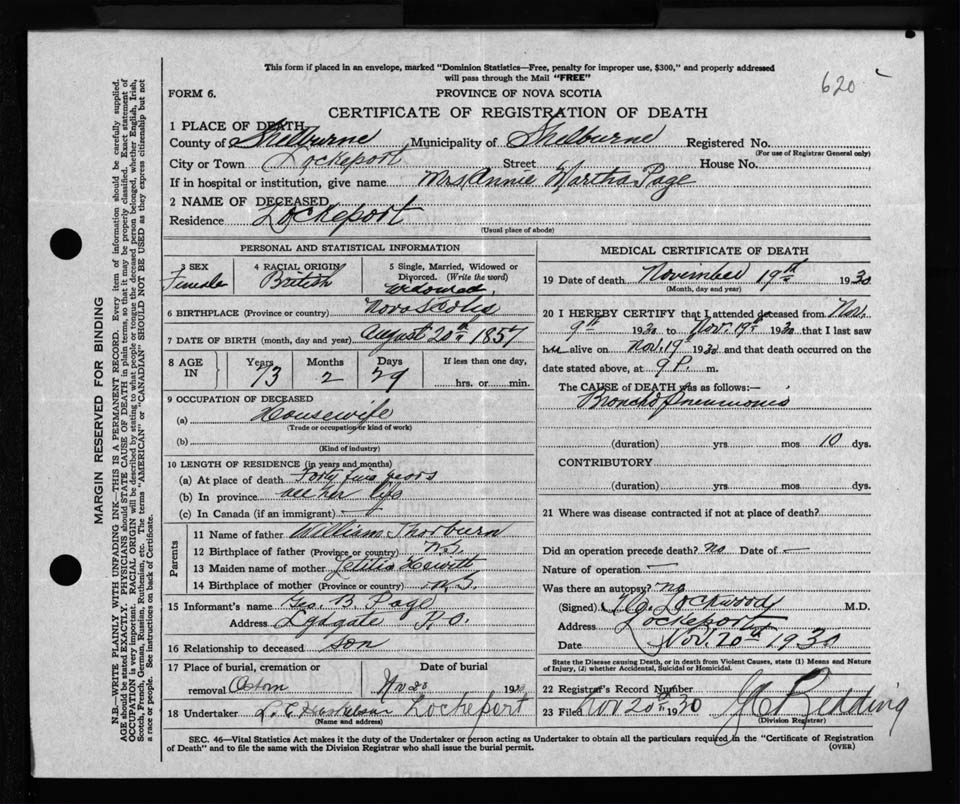 This form if placed in an envelope, marked "Dominion Statistics—Free, penalty for improper use, $300," and properly addressed
will pass through the Mail "FREE"
620
FORM 6.
PROVINCE OF NOVA SCOTIA
CERTIFICATE OF REGISTRATION OF DEATH
1 PLACE OF DEATH
County of Shelburne Municipality of Shelburne Registered No.
(For use of Registrar General only)
City or Town Lockeport Street House No.
If in hospital or institution, give name Mrs Annie Martha Page
2 NAME OF DECEASED
Residence Lockeport
(Usual place of abode)
PERSONAL AND STATISTICAL INFORMATION
3 SEX 4 RACIAL ORIGIN 5 Single, Married, Widowed or Divorced. (Write the word)
Female British Widowed
6 BIRTHPLACE (Province or country) Nova Scotia
7 DATE OF BIRTH (month, day and year) August 20th 1857
8 AGE IN Years Months Days If less than one day,
73 2 29 hrs. or min.
9 OCCUPATION OF DECEASED
(a) Housewife
(Trade or occupation or kind of work)
(b)
(Kind of industry)
10 LENGTH OF RESIDENCE (in years and months)
(a) At place of death Forty five years
(b) In province all her life
(c) In Canada (if an immigrant) —
Parents
11 Name of father William Thorburn
12 Birthplace of father (Province or country) N.S.
13 Maiden name of mother Letitia Hewitt
14 Birthplace of mother (Province or country) N.S.
15 Informant's name Geo. B. Page
Address Lydgate P.O.
16 Relationship to deceased son
17 Place of burial, cremation or Date of burial
removal Nov 20 1930
18 Undertaker L. E. Lockeport
(Name and address)
MEDICAL CERTIFICATE OF DEATH
19 Date of death November 19th 1930
(Month, day and year)
20 I HEREBY CERTIFY that I attended deceased from Nov.
9th 1930 to Nov. 19th 1930 that I last saw
her alive on Nov. 19th 1930 and that death occurred on the
date stated above, at 9 P. m.
The CAUSE of DEATH was as follows:—
Broncho Pneumonia
(duration) yrs mos 10 dys.
CONTRIBUTORY
(duration) yrs mos dys.
21 Where was disease contracted if not at place of death?
Did an operation precede death? no Date of —
Nature of operation —
Was there an autopsy? no
(Signed) Lockwood M.D.
Address Lockeport
Date Nov. 20th 1930
State the Disease causing Death, or in death from Violent Causes, state (1) Means and Nature
of Injury, (2) whether Accidental, Suicidal or Homicidal.
22 Registrar's Record Number
23 Filed Nov 20th 1930 Redding
(Division Registrar)
SEC. 46—Vital Statistics Act makes it the duty of the Undertaker or person acting as Undertaker to obtain all the particulars required in the "Certificate of Registration
of Death" and to file the same with the Division Registrar who shall issue the burial permit.
(OVER)
MARGIN RESERVED FOR BINDING
N.B.—WRITE PLAINLY WITH UNFADING INK—THIS IS A PERMANENT RECORD. Every item of information should be carefully supplied.
AGE should be stated EXACTLY. PHYSICIANS should STATE CAUSE OF DEATH in plain terms, so that it may be properly classified. Exact statement of
OCCUPATION is very important. RACIAL ORIGIN will be described by stating to what people or tongue the deceased person belonged, whether English, Irish,
Scotch, French, German, Russian, Ruthenian, etc. The terms "AMERICAN" or "CANADIAN" SHOULD NOT BE USED as they express citizenship but not
a race or people. See instructions on back of Certificate.